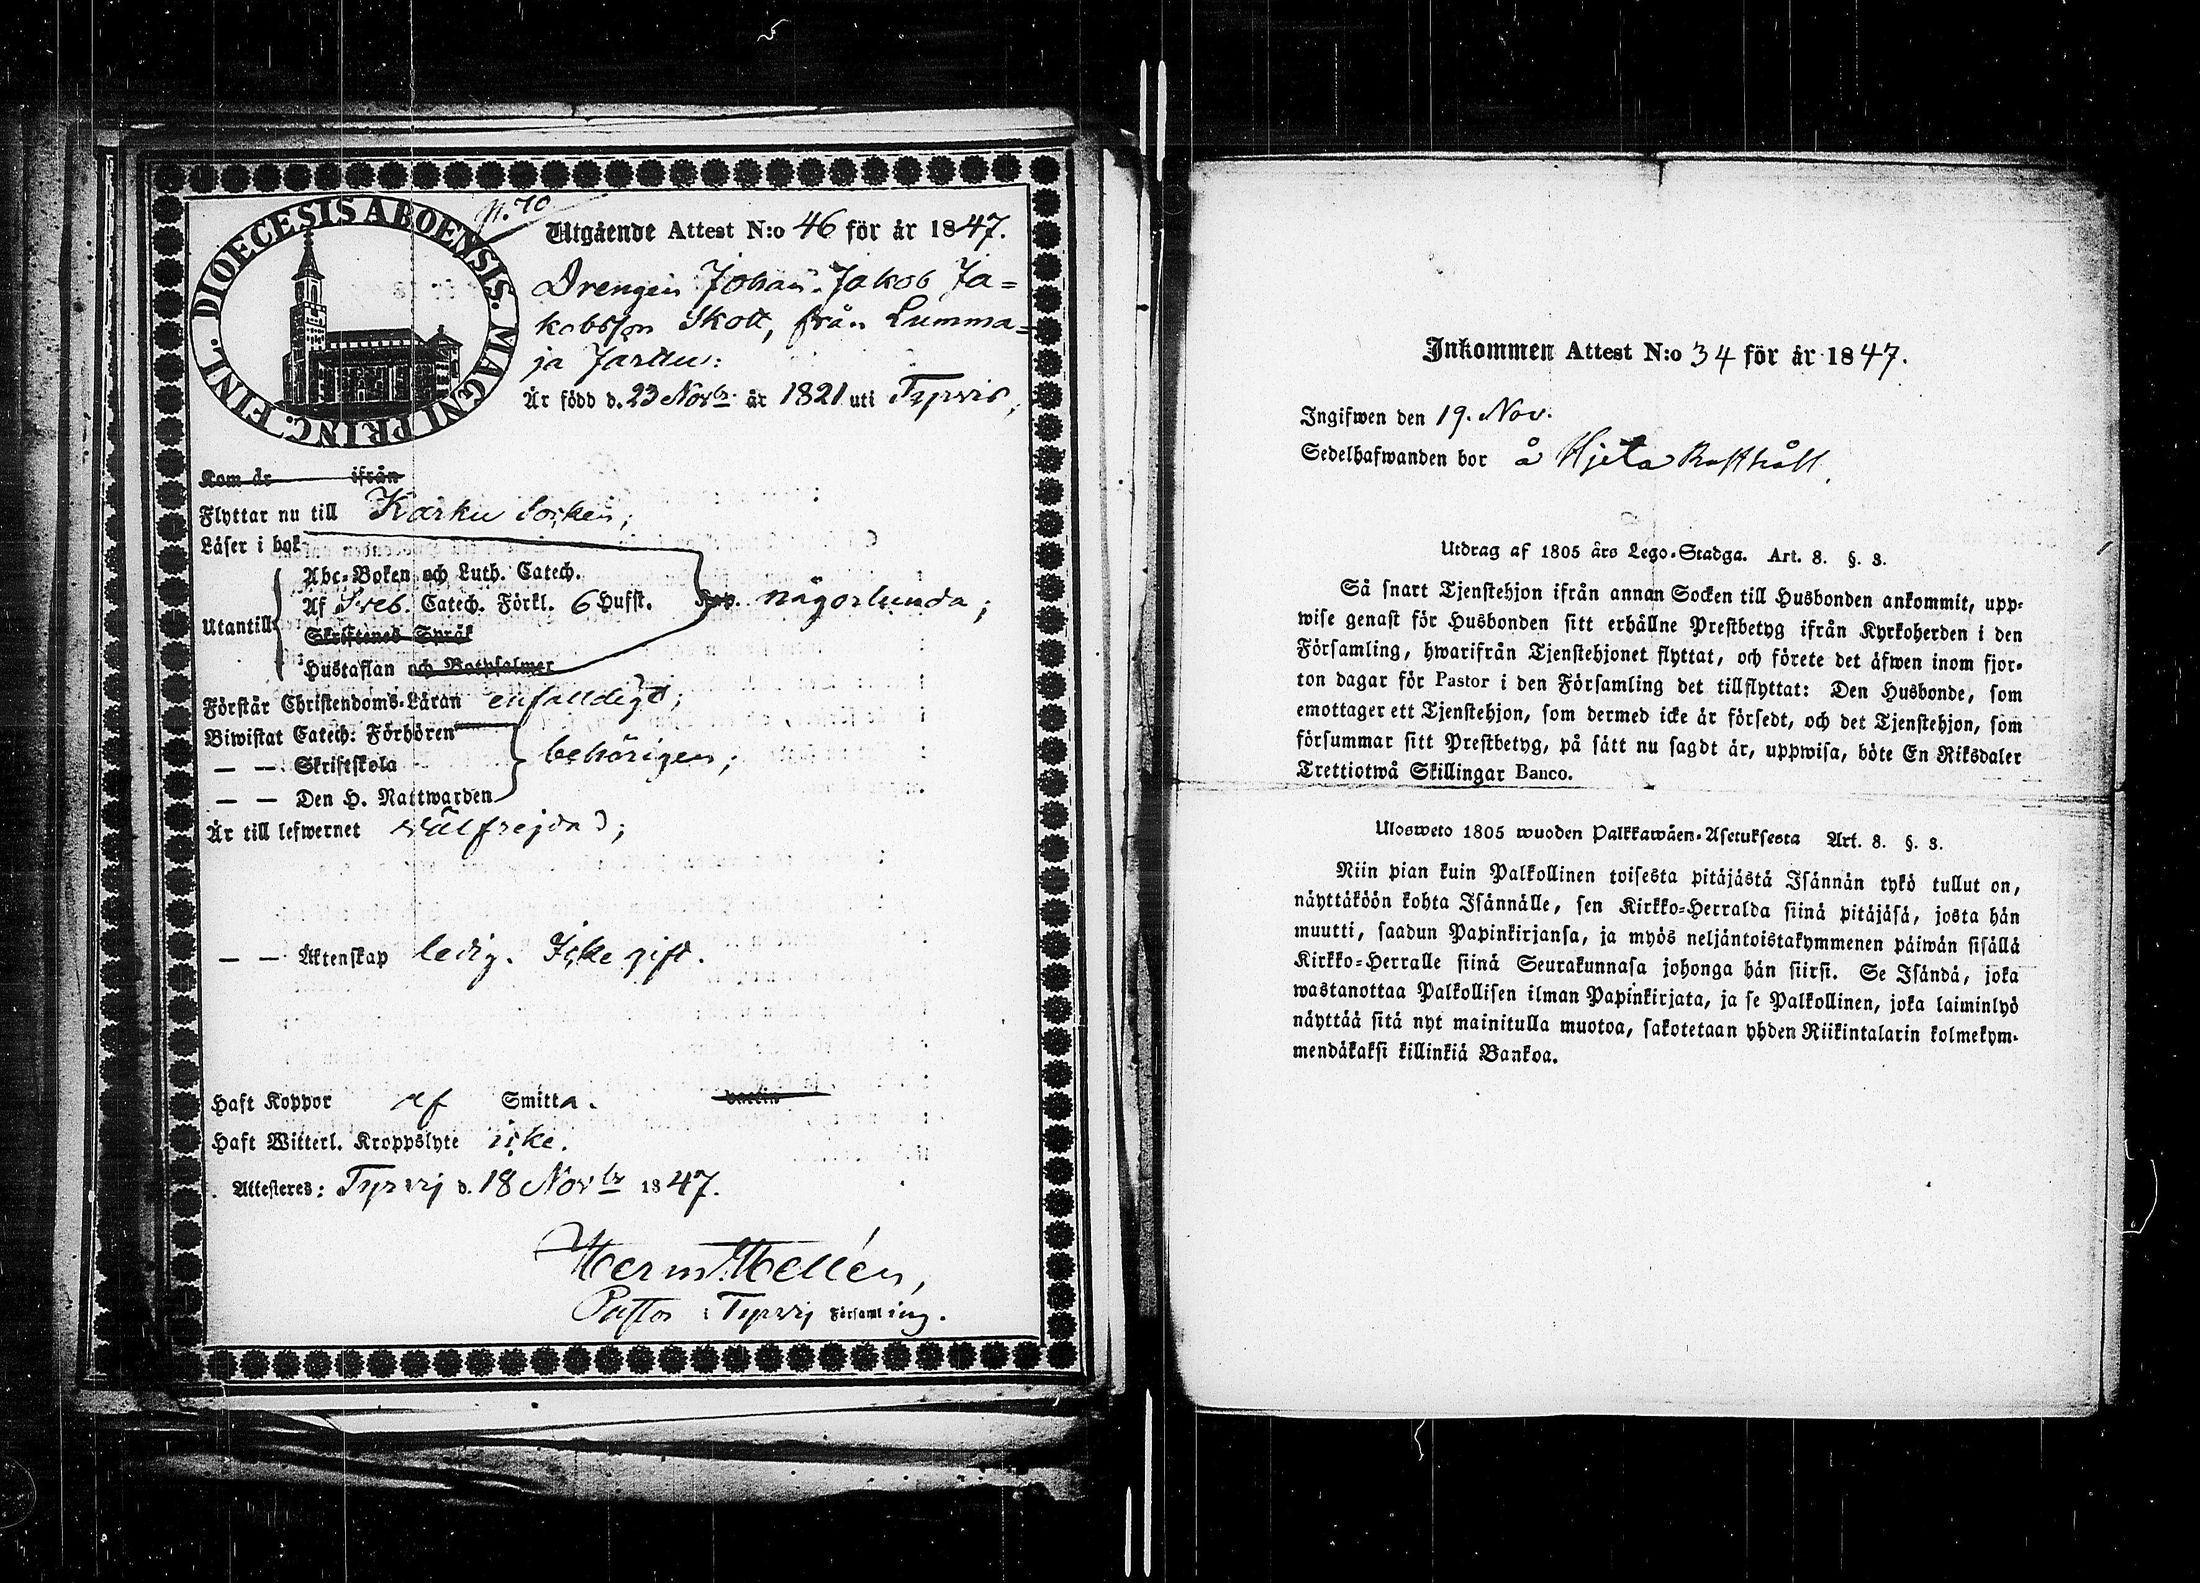 DIOECESIS ABOENSIS. MAGNI PRINC. FINL.
N. 70
Utgående Attest N:o 46 för år 1847.
Drengen Johan Jakob Ja=
kobsson Skott, från Lumma=
ja Jarttu:
Är född d. 23 Novbr. år 1821 uti Tyrvis,
Kom år ifrån
Flyttar nu till Karku Socken;
Läser i bok
Abc-Boken och Luth. Catech.
Utantill Af Sveb. Catech. Förkl. 6 Hufst. någorlunda;
Skriftenes Språk
Hustaflan och Botpsalmer
Förstår Christendoms-Läran enfaldigt;
Biwistat Catech: Förhören
— — Skriftskola behörigen;
— — Den H. Nattwarden
Är till lefwernet välfrejdad;
— — Äktenskap ledig. Icke gift.
Haft Koppor af Smitta. vaccin
Haft Witterl. Kroppslyte icke.
Attesteres: Tyrvis d. 18 Novbr 1847.
Herm. Hellén,
Pastor i Tyrvis Församling.
Inkommen Attest N:o 34 för år 1847.
Ingifwen den 19. Nov.
Sedelhafwanden bor å Hjeta Rusthåll.
Utdrag af 1805 års Lego-Stadga. Art. 8. §. 3.
Så snart Tjenstehjon ifrån annan Socken till Husbonden ankommit, upp-
wise genast för Husbonden sitt erhållne Prestbetyg ifrån Kyrkoherden i den
Församling, hwarifrån Tjenstehjonet flyttat, och förete det äfwen inom fjor-
ton dagar för Pastor i den Församling det tillflyttat: Den Husbonde, som
emottager ett Tjenstehjon, som dermed icke är försedt, och det Tjenstehjon, som
försummar sitt Prestbetyg, på sätt nu sagdt är, uppwisa, böte En Riksdaler
Trettiotwå Skillingar Banco.
Ulosweto 1805 wuoden Palkkawäen-Asetuksesta Art. 8. §. 3.
Niin pian kuin Palkollinen toisesta pitäjästä Isännän tykö tullut on,
näyttäköön kohta Isännälle, sen Kirkko-Herralda siinä pitäjäsä, josta hän
muutti, saadun Papinkirjansa, ja myös neljäntoistakymmenen päiwän sisällä
Kirkko-Herralle siinä Seurakunnasa johonga hän siirsi. Se Isändä, joka
wastanottaa Palkollisen ilman Papinkirjata, ja se Palkollinen, joka laiminlyö
näyttää sitä nyt mainitulla muotoa, sakotetaan yhden Riikintalarin kolmekym-
mendäkaksi killinkiä Bankoa.